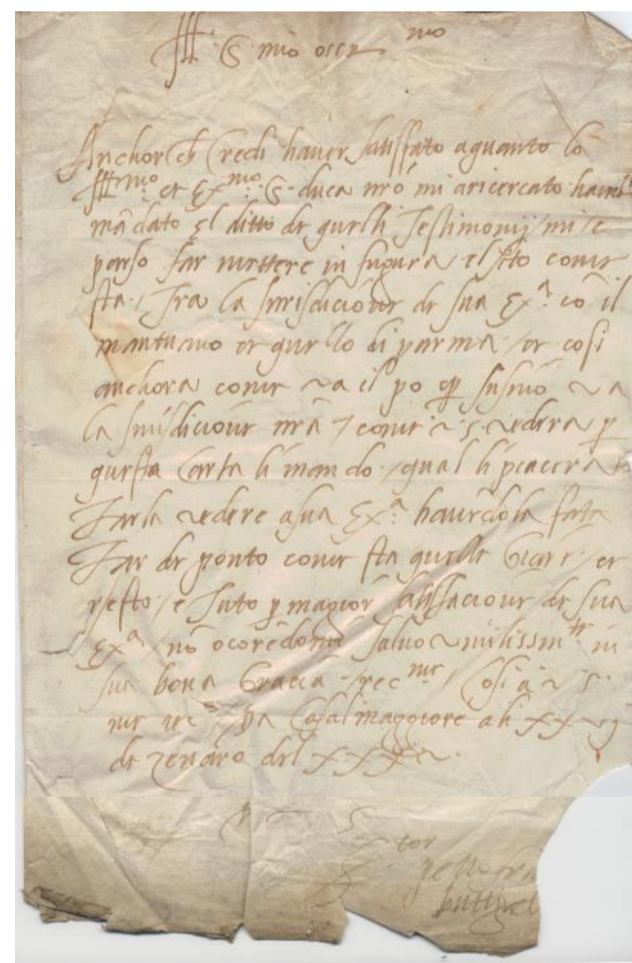 Ill S mio oss.mo
Anchor ch Credi haver satisfato a quanto lo
Ill.mo et Ex.mo S. duca nrõ mi a ricercato
mãdato el ditto de quelli Testimonij / mi e
parso far mettere in figura el sito come
sta / fra la Jurisdicione de sua Ex.a cõ il
mantuano et quello di parma / et cosi
anchora come va il po
la Jurisdicione nrã / come v. s. vedera p
questa Carta li mando / qual li piacera
Farla vedere a sua Ex.a havẽdola fata
Far de ponto come sta quelle et
resto / e tuto p magior satisfacione de sua
Ex.a / nõ ocorẽdomi salvo in
sua bona Gracia / Cosi a v s
Da Casalmaggiore ali XX
de zenaro del XXX
V S
S.tor